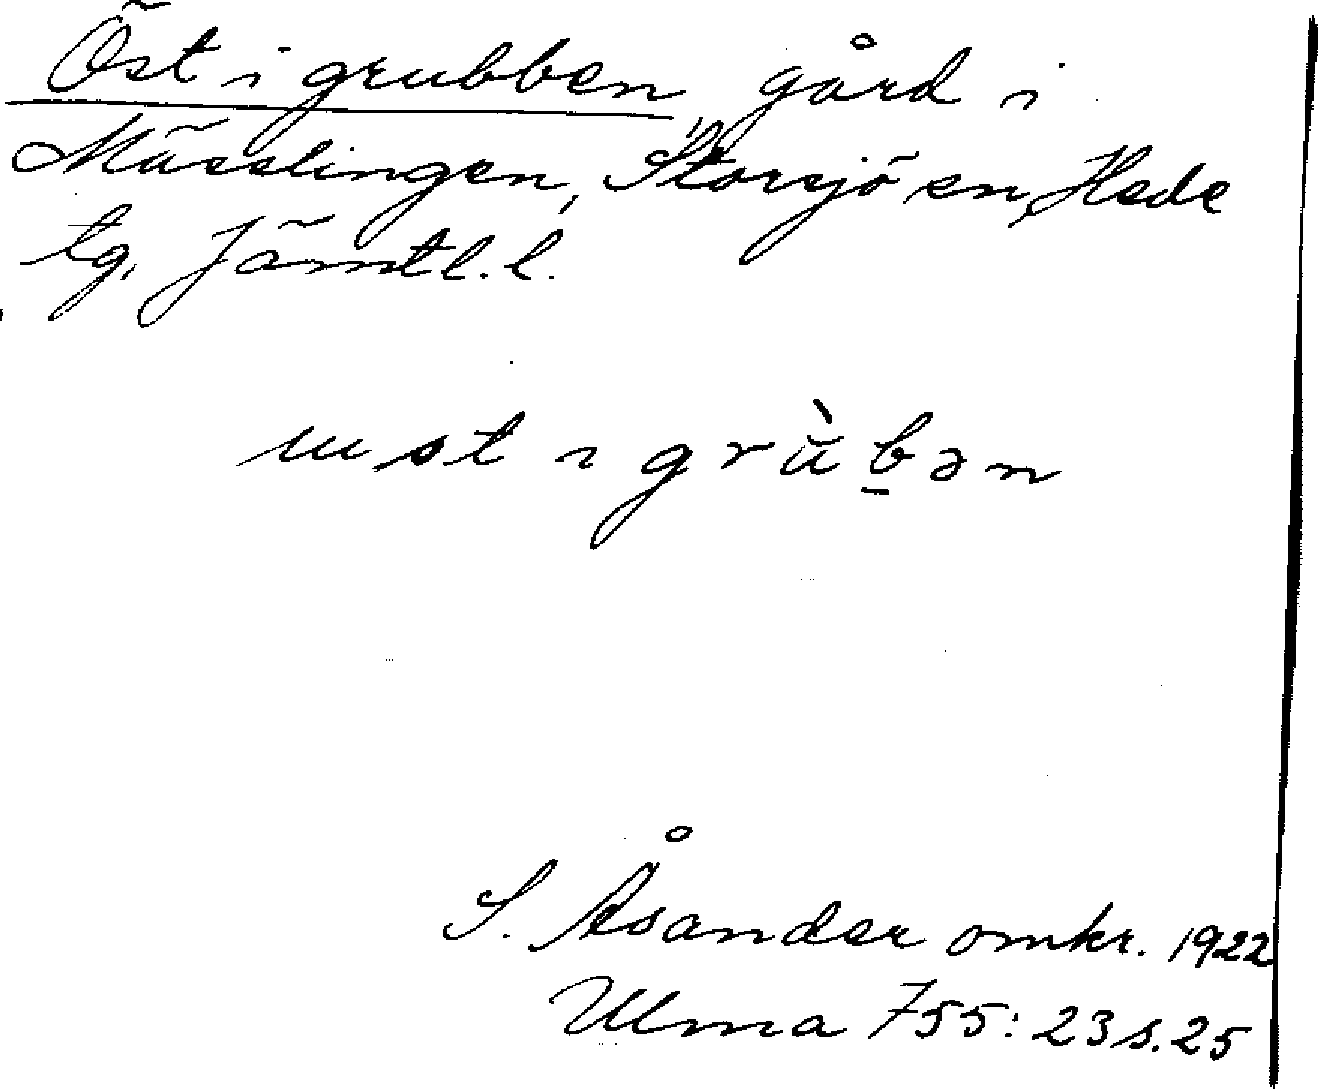 Öst i grubben, gård i
Mässlingen, Storsjö sn, Hede
tg, Jämtl. l.
ust ı grùb̠ən
S. Åsander omkr. 1922
Ulma 755: 23 s. 25